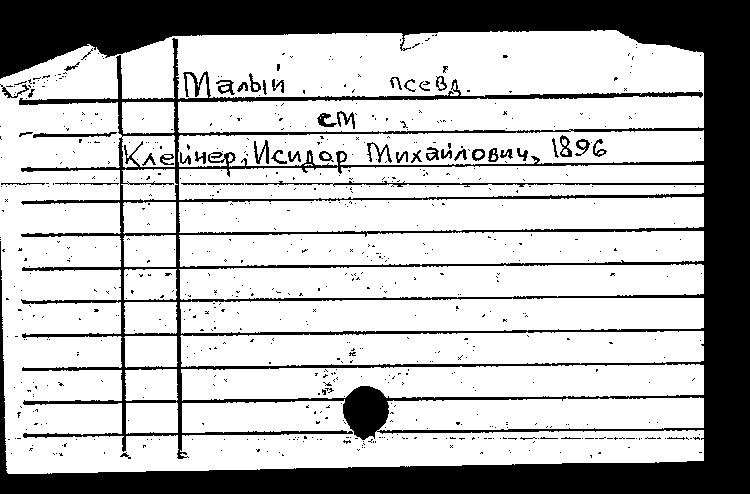 Малый псевд.
см
Клейнер, Исидор Михайлович, 1896